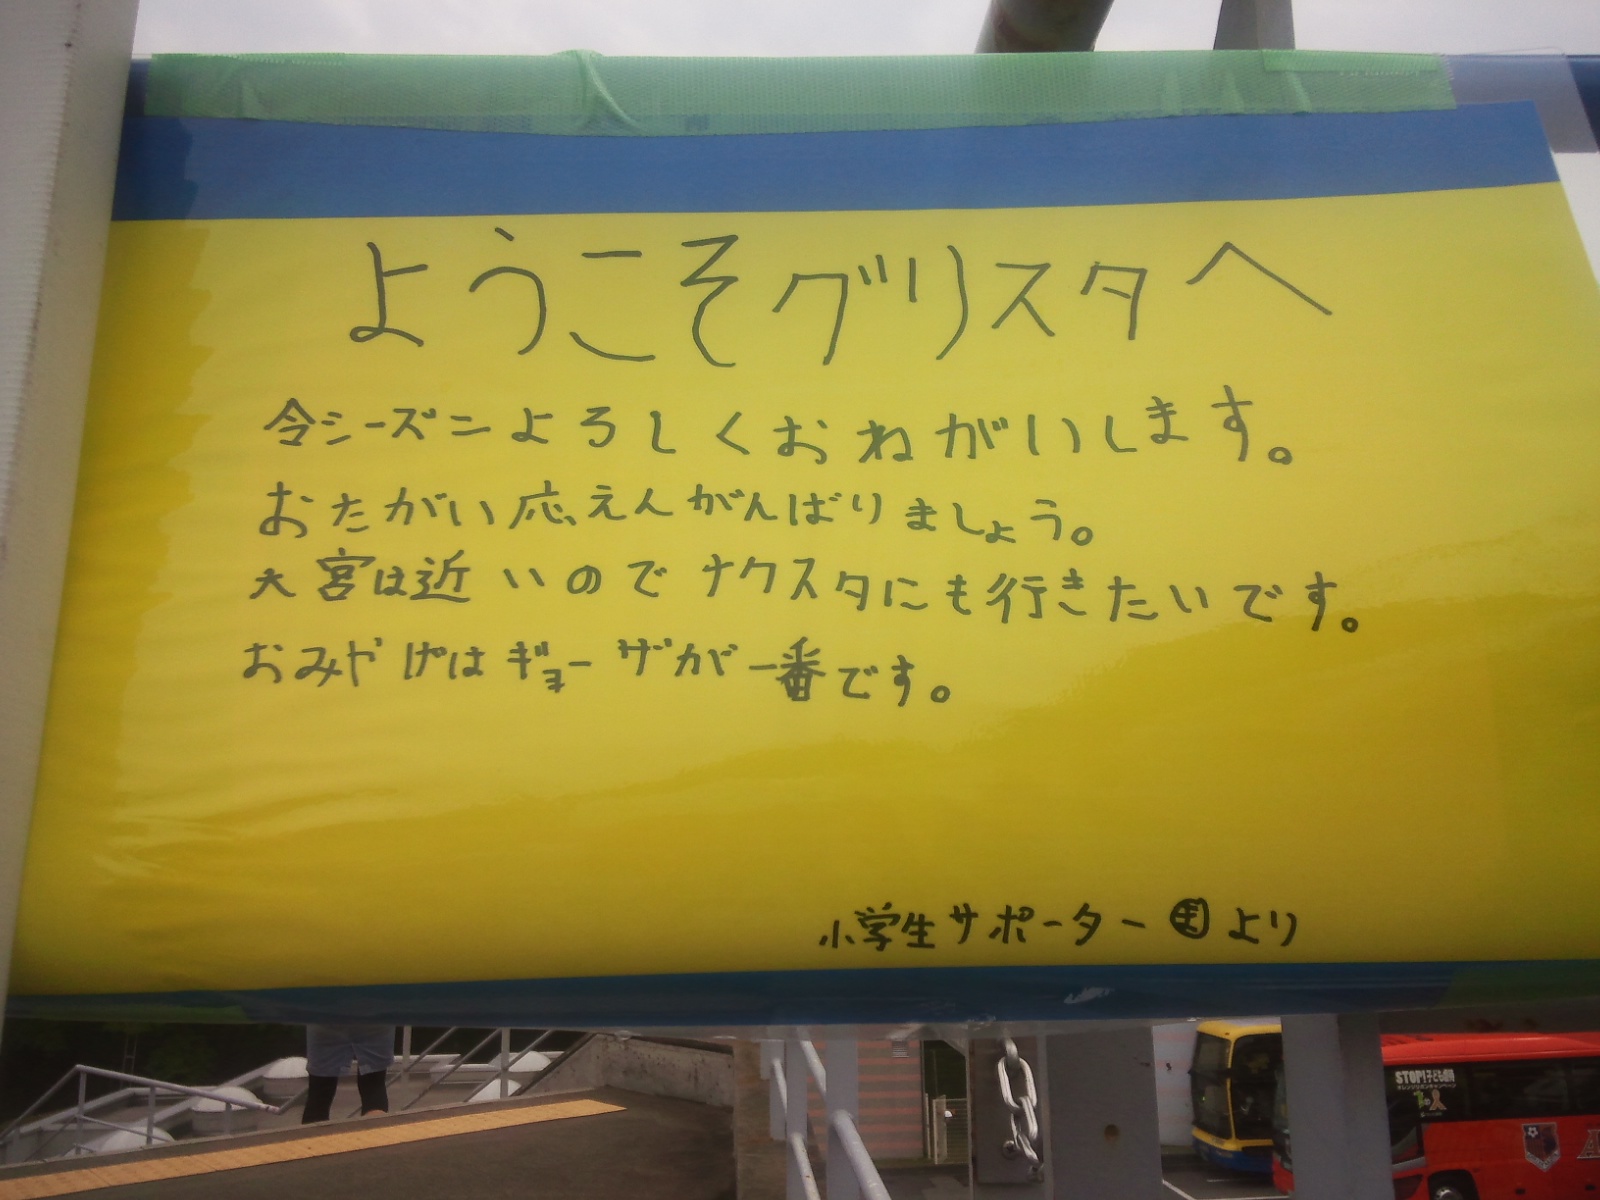 ようこそグリスタへ
今シーズンよろしくおねがいします。
おたがい応えんがんばりましょう。
大宮は近いのでナクスタにも行きたいです。
おみやげはギョーザが一番です。
小学生サポーター より
STOP!子ども虐待